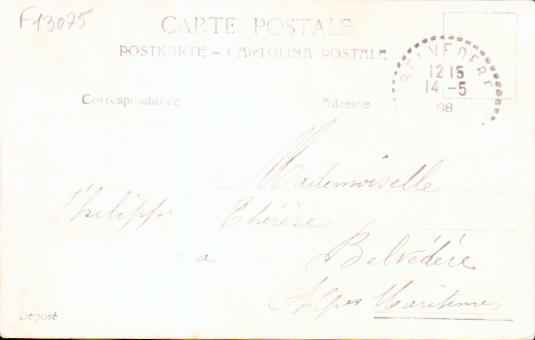 F13075
CARTE POSTALE
POSTKARTE – CARTOLINA POSTALE
BELVEDERE
12 15
14 -5
08
Correspondance
Adresse
Mademoiselle
Philippi Thérèse
a Belvédère
Alpes Maritimes
Déposé